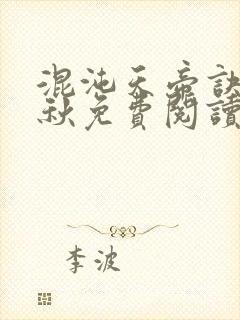 混沌天帝訣
秋免費閱讀
李波